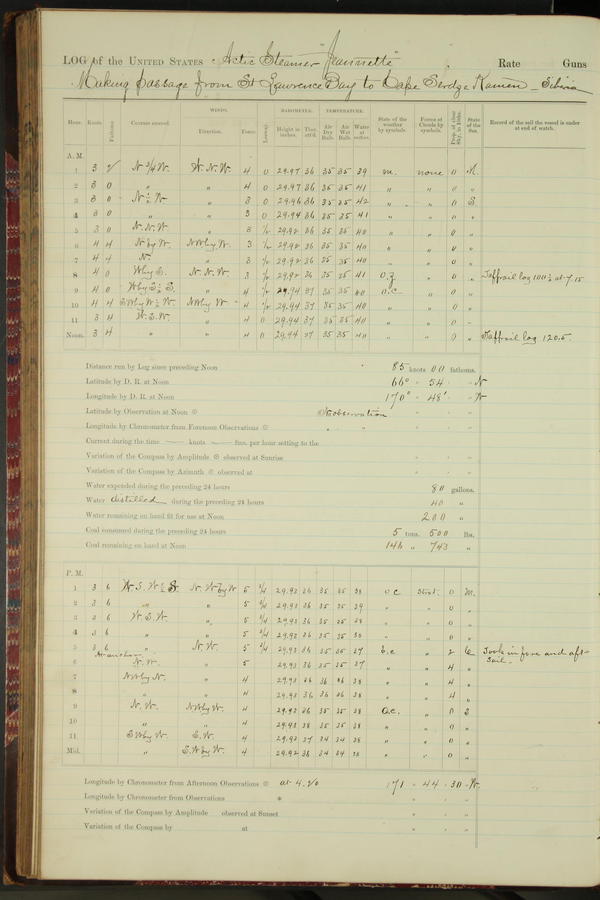 LOG of the UNITED STATES Arctic Steamer "Jeannette" Rate Guns
Making passage from St Lawrence Bay to Cape Serdze Kamen - Siberia
Hour. Knots. Fathoms. Courses steered. WINDS. Direction. Force. Leeway. BAROMETER. Height in inches. Ther. att'd. TEMPERATURE. Air Dry Bulb. Air Wet Bulb. Water at surface. State of the weather by symbols. Forms of Clouds by symbols. Prop. of clear Sky, in 10ths. State of the Sea. Record of the sail the vessel is under at end of watch.
A. M.
1 3 N 3/4 W. W. N. W. 4 0 29.97 36 35 35 39 m. none 0 M.
2 3 0 " " 4 0 29.97 36 35 35 41 " " 0 "
3 3 0 N 1/2 W. " 3 0 29.96 36 35 35 42 " " 0 S.
4 3 0 " " 3 0 29.94 36 35 35 41 " " 0 "
5 3 0 N. N. W. " 3 1/2 29.92 36 35 35 40 " " 0 "
6 4 4 N by W. NW by N. 3 1/2 29.92 36 35 35 40 " " 0 "
7 4 4 N. " 3 1/2 29.92 36 35 35 40 " " 0 "
8 4 0 W by S. N. N. W. 3 1/2 29.92 36 35 35 41 " 0 " Taffrail log 100 1/2 at 7.15
9 4 0 W by S 1/2 S. " 4 1/2 29.94 37 35 35 40 o.c " 0 "
10 4 4 SW by W 1/2 W. NW by W. 4 1/2 29.94 37 35 35 40 " " 0 "
11 3 4 W. S. W. " 4 0 29.94 37 35 35 40 " " 0 "
Noon. 3 4 " " 4 0 29.94 37 35 35 40 " " 0 " Taffrail log 120.5.
Distance run by Log since preceding Noon 85 knots 00 fathoms.
Latitude by D. R. at Noon 66° 54 " N
Longitude by D. R. at Noon 170° 48' " W
Latitude by Observation at Noon No observation
Longitude by Chronometer from Forenoon Observations " "
Current during the time — knots — fms. per hour setting to the
Variation of the Compass by Amplitude observed at Sunrise
Variation of the Compass by Azimuth observed at
Water expended during the preceding 24 hours 80 gallons.
Water distilled during the preceding 24 hours 40 "
Water remaining on hand fit for use at Noon 200 "
Coal consumed during the preceding 24 hours 5 tons. 500 lbs.
Coal remaining on hand at Noon 146 " 743 "
P. M.
1 3 6 W. S. W 1/2 S. N. W by W 5 3/4 29.93 36 35 35 38 o c Strat. 0 M.
2 3 6 " " 5 3/4 29.93 36 35 35 39 " 0 "
3 3 6 W. S. W. " 5 3/4 29.93 36 35 35 38 " " 0 "
4 3 6 " " 5 3/4 29.93 36 35 35 38 " " 0 "
5 3 6 " N. W. 5 3/4 29.93 36 35 35 37 b.c " 2 Took in fore and aft
At anchor sail.
6 N. W. " 5 29.93 36 35 35 37 " " 4 "
7 NW by N. " 4 29.93 36 36 36 38 " " 4 "
8 " " 4 29.93 36 36 36 38 " " 4 "
9 N. W. NW by W. 4 29.93 36 35 35 38 o.c. " 0 S
10 " " 4 29.93 38 35 35 38 " " 0 "
11 SW by W. S. W. 4 29.92 37 34 34 38 " " 0 "
Mid. " S. W by W. 4 29.92 36 34 34 38 " " 0 "
Longitude by Chronometer from Afternoon Observations at 4.20 171 - 44 - 30 - W.
Longitude by Chronometer from Observations
Variation of the Compass by Amplitude observed at Sunset
Variation of the Compass by at